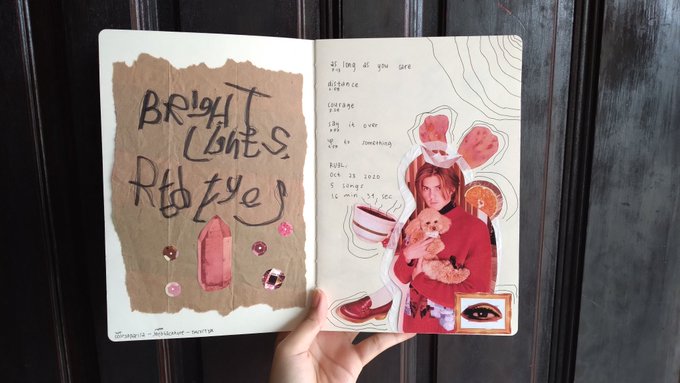 BRIGHT
LIGHTS,
RED EYES
as long as you care
distance
courage
say it over
up to something
RUEL.
Oct 23 2020
5 songs
16 min 34 sec